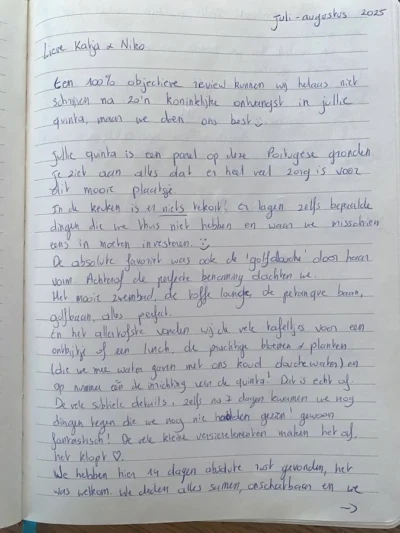 juli-augustus 2025
Lieve Katja & Niko
Een 100% objectieve review kunnen wij helaas niet
schrijven na zo'n koninklijke ontvangst in jullie
quinta, maar we doen ons best ☺
Jullie quinta is een parel op deze Portugese gronden.
Je ziet aan alles dat er heel veel zorg is voor
dit mooie plaatsje.
In de keuken is er niets tekort! er lagen zelfs bepaalde
dingen die we thuis niet hebben en waar we misschien
eens in moeten investeren. ☺
De absolute favoriet was ook de 'golfdouche' door haar
vorm. Achteraf de perfecte benaming dachten we.
Het mooie zwembad, de toffe lounge, de petanque baan,
golfbaan, alles perfect.
En het allertofste vonden wij de vele tafeltjes voor een
ontbijtje of een lunch, de prachtige bloemen & planten
(die we mee water gaven met ons koud douchewater) en
op nummer één de inrichting van de quinta! Dit is echt af.
De vele subtiele details, zelfs na 7 dagen kwamen we nog
dingen tegen die we nog nie hadden gezien! gewoon
fantastisch! De vele kleine versierelementen maken het af,
het klopt ♡.
We hebben hier 14 dagen absolute rust gevonden, het
was welkom. We deden alles samen, onschatbaar en we
→